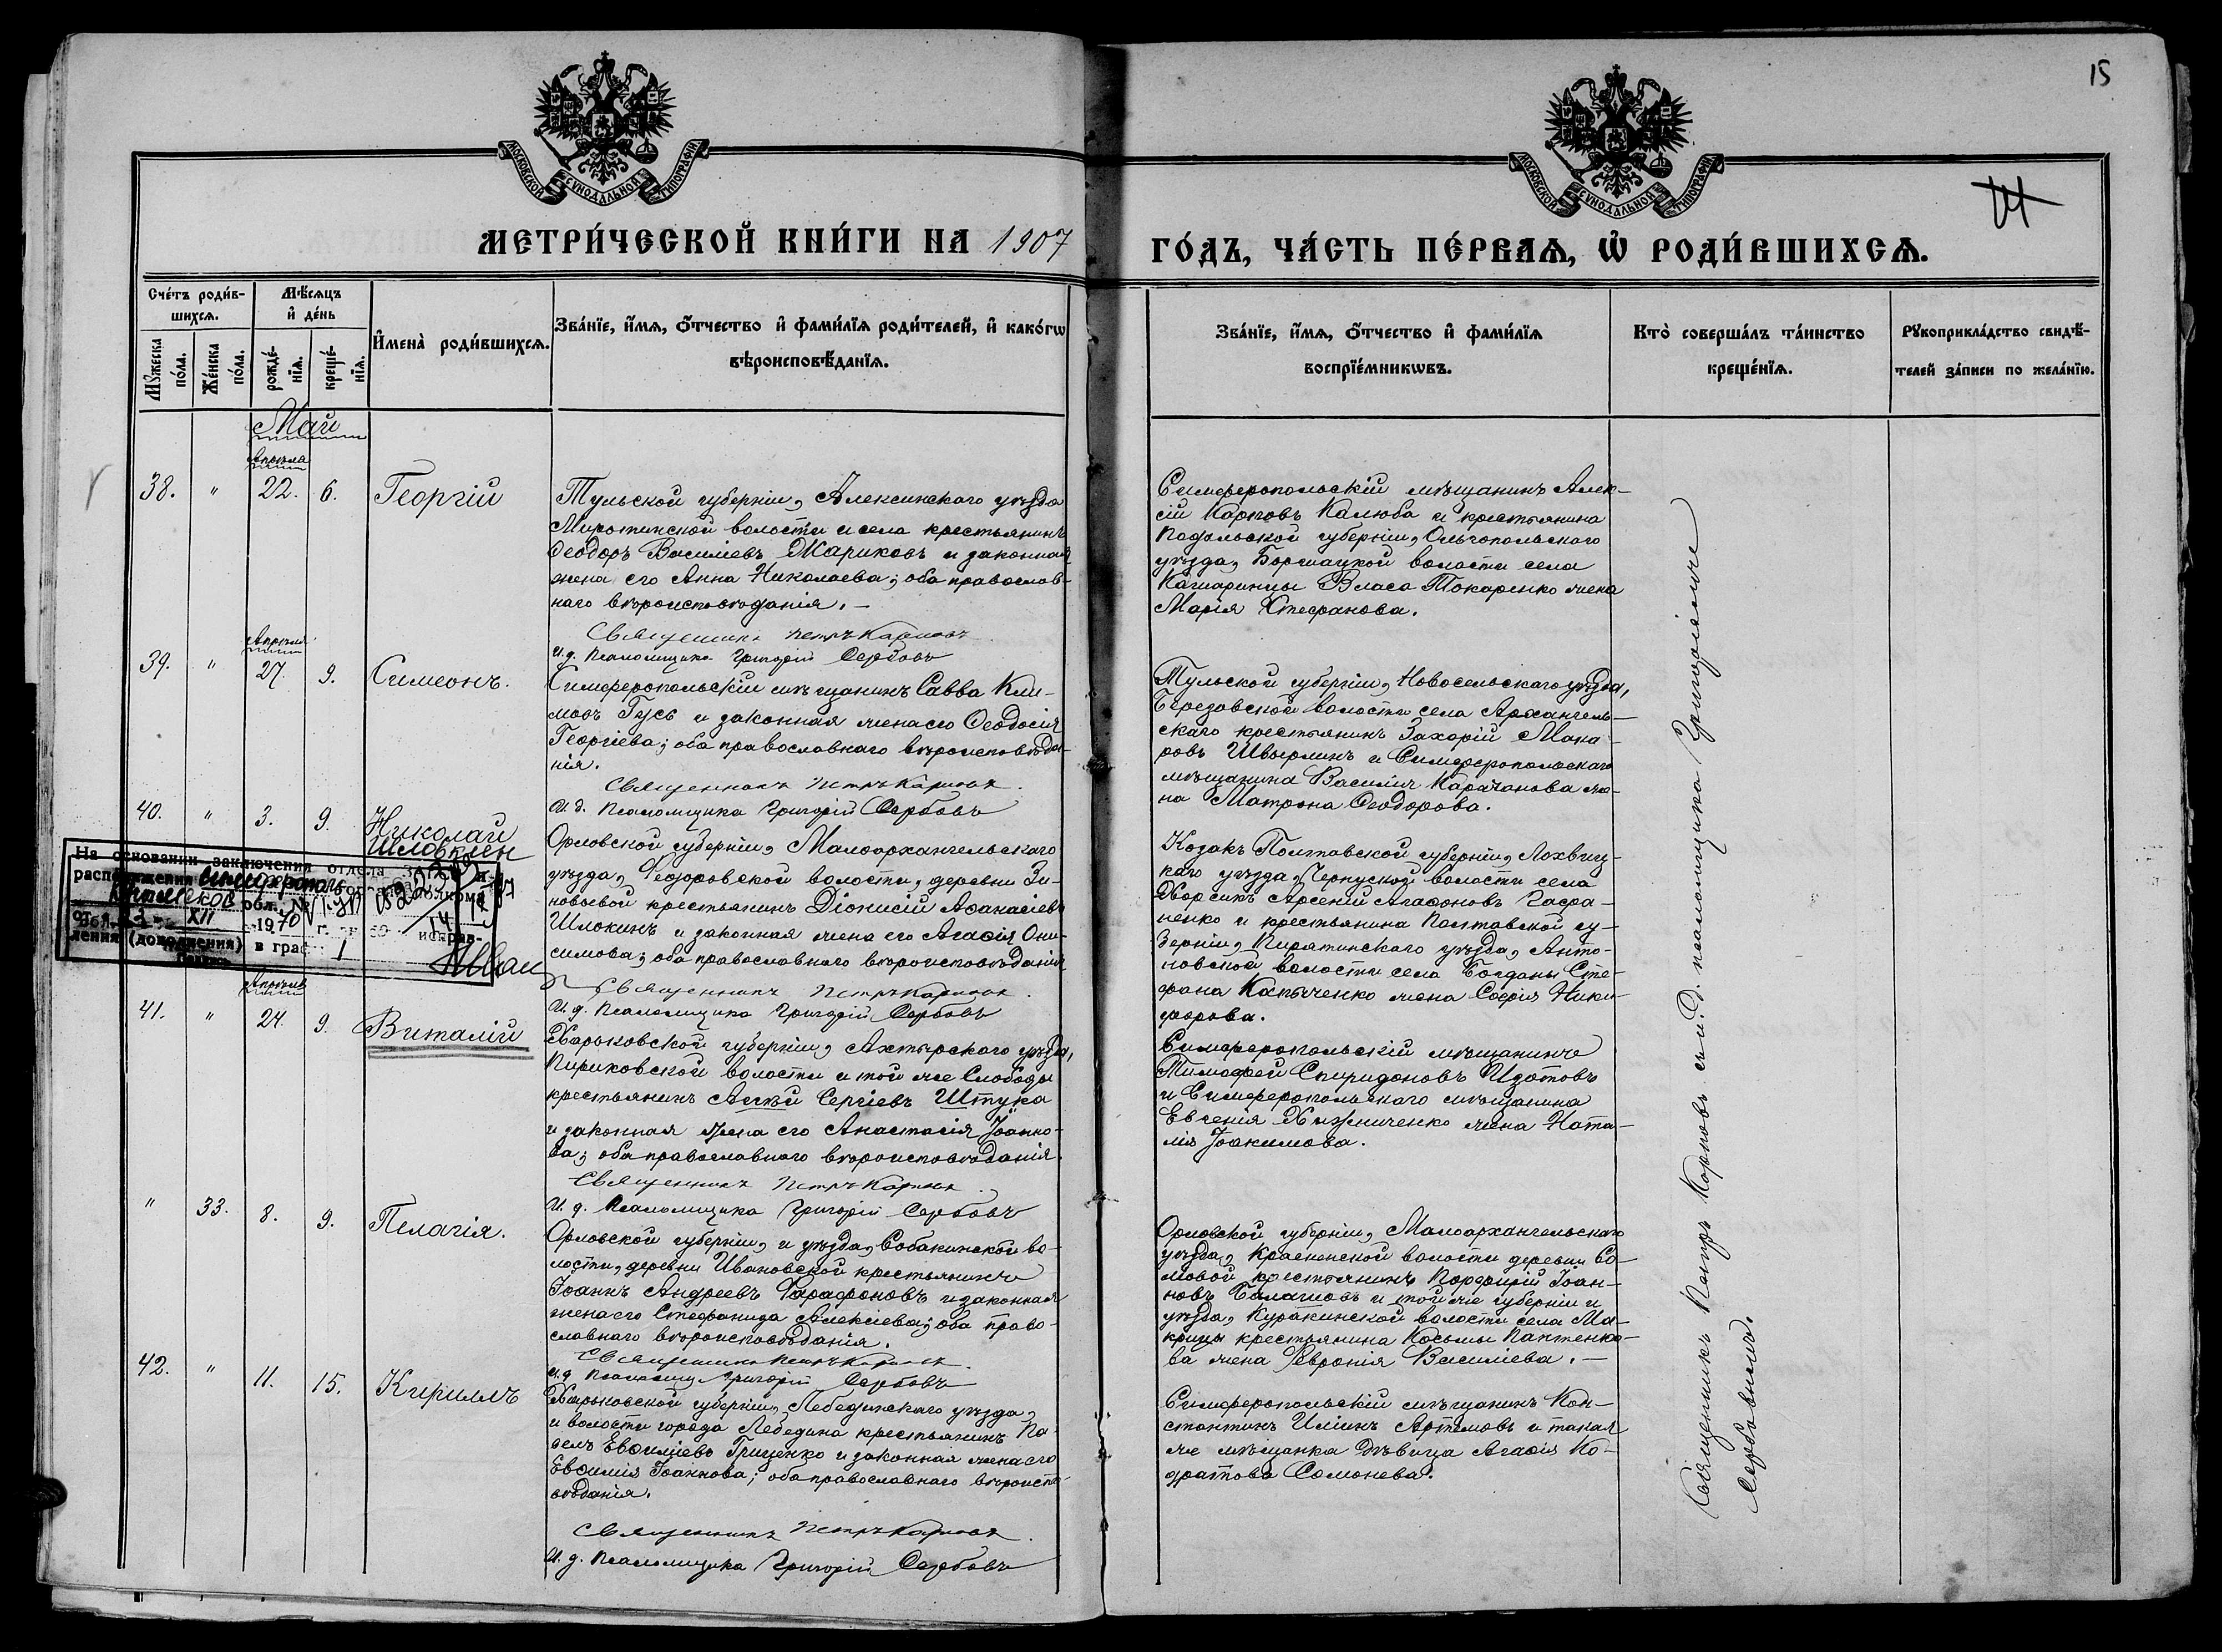 15
МОСКОВСКОЙ СѴНОДАЛЬНОЙ ТИПОГРАФІИ
МОСКОВСКОЙ СѴНОДАЛЬНОЙ ТИПОГРАФІИ
МЕТРИ́ЧЕСКОЙ КНИ́ГИ НА 1907
ГО́ДЪ, ЧА́СТЬ ПЕ́РВАѦ, Ѡ҆ РОДИ́ВШИХСѦ.
Сче́тъ роди́в-
шихсѧ.
Мꙋ́жеска по́ла.
Же́нска по́ла.
Мѣ́сѧцъ
и҆ де́нь
рожде́-
нїѧ.
креще́-
нїѧ.
И҆мена̀ роди́вшихсѧ.
Зва́нїе, и҆́мѧ, ѻ҆́тчество и҆ фами́лїѧ роди́телей, и҆ како́гѡ
вѣроисповѣ́данїѧ.
Зва́нїе, и҆́мѧ, ѻ҆́тчество и҆ фами́лїѧ
воспрїе́мникѡвъ.
Кто̀ соверша́лъ та́инство
креще́нїѧ.
Рꙋкоприкла́дство свидѣ́-
телей за́писи по жела́нїю.
Май
Апрѣля
38. " 22. 6. Георгій
Тульской губерніи, Алексинскаго уѣзда
Миротинской волости и села крестьянинъ
Ѳеодоръ Василіевъ Жариковъ и законная
жена его Анна Николаева; оба православ-
наго вѣроисповѣданія. —
Священникъ Петръ Карповъ
И. д. Псаломщика Григорій Сербовъ
Симферопольскій мѣщанинъ Алек-
сій Карповъ Калюба и крестьянина
Подольской губерніи, Ольгопольскаго
уѣзда, волости села
Власа Токаренко жена
Марія Стефанова.
Апрѣля
39. " 27. 9. Симеонъ.
Симферопольскій мѣщанинъ Савва Кли-
мовъ Гусь и законная жена его Ѳеодосія
Георгіева; оба православнаго вѣроисповѣда-
нія.
Священникъ Петръ Карповъ.
И д. Псаломщика Григорій Сербовъ
Тульской губерніи, Новосельскаго уѣзда,
Березовской волости села Архангель-
скаго крестьянинъ Захарій Мака-
ровъ Швырлинъ и Симферопольскаго
мѣщанина Василія Карачанова же-
на Матрона Ѳеодорова.
40. " 3. 9. Николай
Шловкин
Орловской губерніи, Малоархангельскаго
уѣзда, Ѳедоровской волости, деревни Зи-
новьевой крестьянинъ Діонисій Аѳанасіевъ
Шлокинъ и законная жена его Агаѳія Они-
симова; оба православнаго вѣроисповѣданія
Священникъ Петръ Карповъ.
И. д. Псаломщика Григорій Сербовъ
Козакъ Полтавской губерніи, Лохвиц-
каго уѣзда, Чернуской волости села
Харсикъ Арсеній Агаѳоновъ Гафа-
ненко и крестьянина Полтавской гу-
берніи, Пирятинскаго уѣзда, Анто-
новской волости села Богданы Сте-
фана Капыченко жена Софія Ники-
форова.
На основании заключения отдела
распоряжения
обл.
от 23 XII 1970 г.
исправ-
ления (дополнения) в граф 1
Апрѣля
41. " 24. 9. Виталій
Харьковской губерніи, Ахтырскаго уѣзда,
Кириковской волости и той же Слободы
крестьянинъ Алекѣй Сергіевъ Штука
и законная жена его Анастасія Іоанно-
ва; оба православнаго вѣроисповѣданія.
Священникъ Петръ Карповъ.
И. д. Псаломщика Григорій Сербовъ
Симферопольскій мѣщанинъ
Тимофей Спиридоновъ Изотовъ
и Симферопольскаго мѣщанина
Евгенія Хижниченко жена Ната-
лія Іоакимова.
" 33. 8. 9. Пелагія.
Орловской губерніи, и уѣзда, Собакинской во-
лости, деревни Ивановской крестьянинъ
Іоаннъ Андреевъ Фарафоновъ и законная
жена его Стефанида Алексіева; оба право-
славнаго вѣроисповѣданія.
Священникъ Петръ Карповъ.
И. д Псаломщ. Григорій Сербовъ
Орловской губерніи, Малоархангельскаго
уѣзда, Красненской волости деревни Со-
мовой крестьянинъ Порфирій Іоан-
новъ Балашовъ и той же губерніи и
уѣзда, Куракинской волости села Ма-
крицы крестьянина Косьмы Каптенко-
ва жена Ѳевронія Василіева. —
42. " 11. 15. Кириллъ
Харьковской губерніи, Лебединскаго уѣзда,
и волости города Лебедина крестьянинъ Па-
велъ Евѳиміевъ Гриценко и законная жена его
Евѳимія Іоаннова; оба православнаго вѣроиспо-
вѣданія.
Священникъ Петръ Карповъ.
И. д. Псаломщика Григорій Сербовъ
Симферопольскій мѣщанинъ Кон-
стантинъ Иліинъ Артемовъ и такая
же мѣщанка дѣвица Агаѳія Ко-
дратова Сомонева.
Священникъ Петръ Карповъ съ и. д. псаломщика Григоріемъ
Сербовымъ.